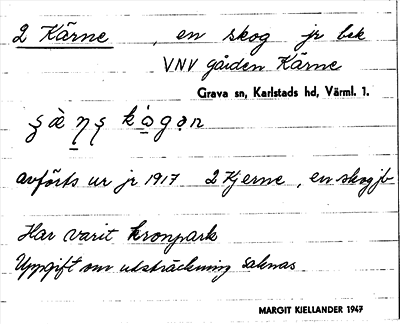 2 Kärne, en skog jr bek
VNV gården Kärne
Grava sn, Karlstads hd, Värml. l.
avförts ur jr 1917 2 Kjerne, en skog jb
Har varit kronpark
Uppgift om utsträckning saknas
MARGIT KJELLANDER 1947